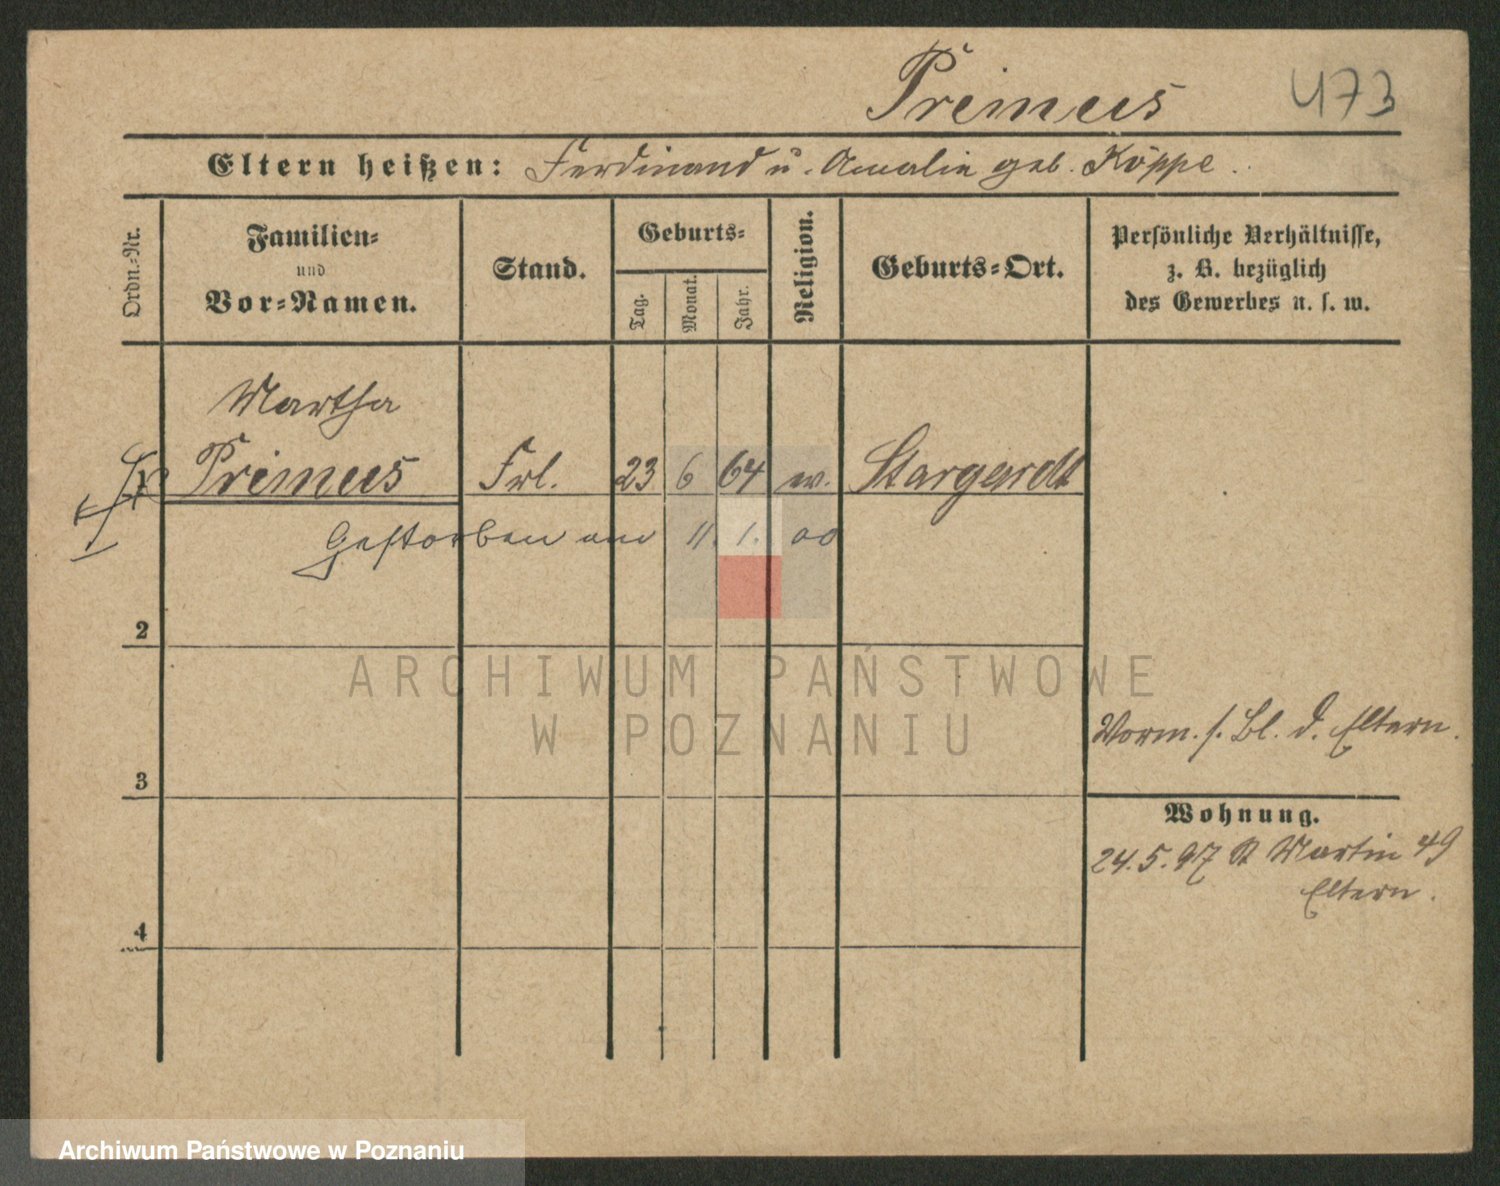 Primus 473
Eltern heißen: Ferdinand u. Amalie geb. Köppe.
Ordn.-Nr.
Familien-
und
Vor-Namen.
Stand.
Geburts-
Tag.
Monat.
Jahr.
Religion.
Geburts-Ort.
Persönliche Verhältnisse,
z. B. bezüglich
des Gewerbes u. s. w.
Martha
Primus Frl. 23 6 64 ev. Stargardt
Gestorben am 11. 1. 00
2
ARCHIWUM PAŃSTWOWE
W POZNANIU
Vorm. s. Bl. d. Eltern.
3
Wohnung.
24.5.97 St Martin 49
Eltern.
4
Archiwum Państwowe w Poznaniu